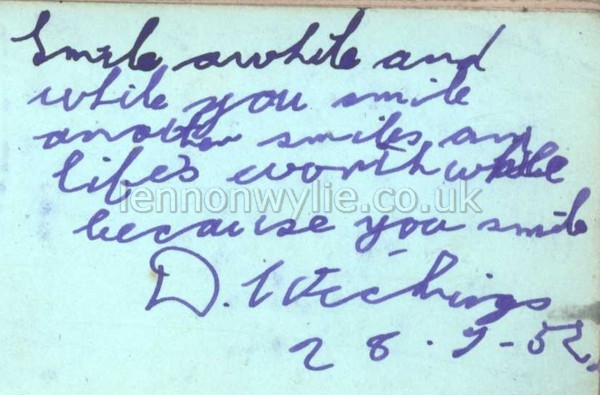 Smile awhile and
while you smile
another smiles and
life's worth while
lennonwylie.co.uk
because you smile
D.
28.7-52.